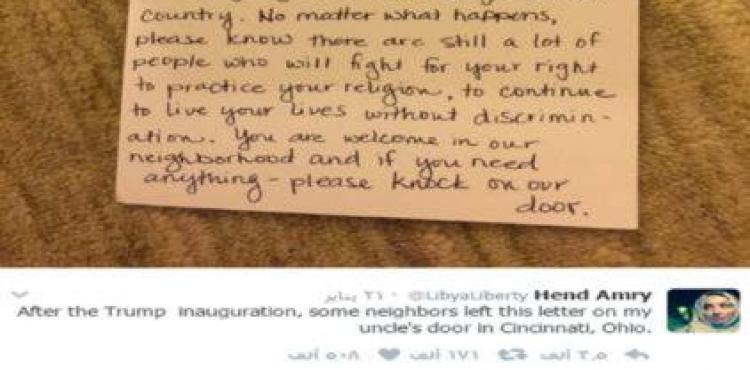 country. No matter what happens,
please know there are still a lot of
people who will fight for your right
to practice your religion, to continue
to live your lives without discrimin -
ation. You are welcome in our
neighborhood and if you need
anything - please knock on our
door.
Hend Amry @LibyaLiberty · ٢١ يناير
After the Trump inauguration, some neighbors left this letter on my
uncle's door in Cincinnati, Ohio.
ألف ١٧١ ألف ٥٠٨ ألف